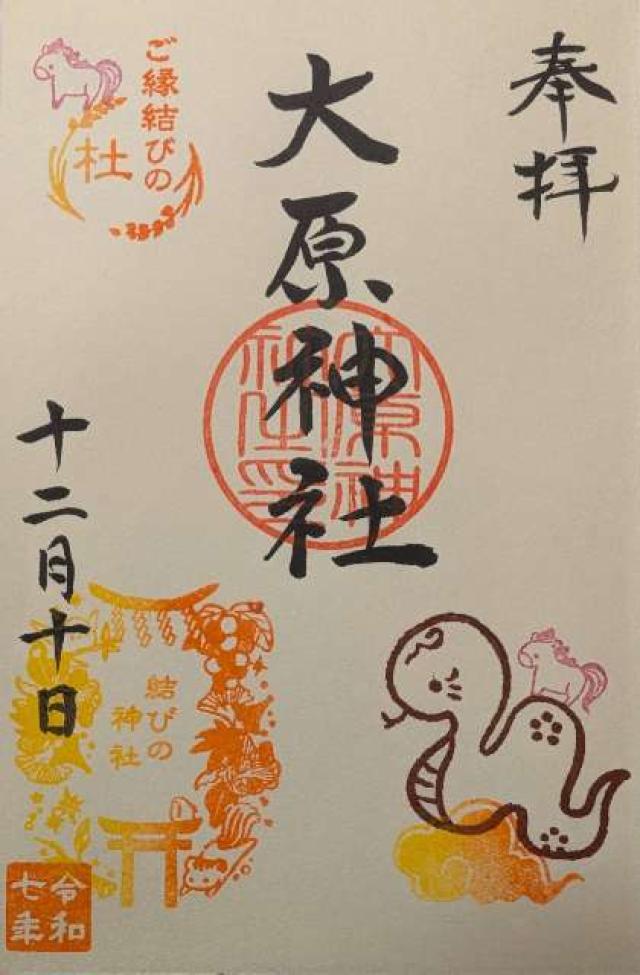 奉拝
大原神社
大原神社之印
ご縁結びの
杜
十二月十日
結びの
神社
令和
七年